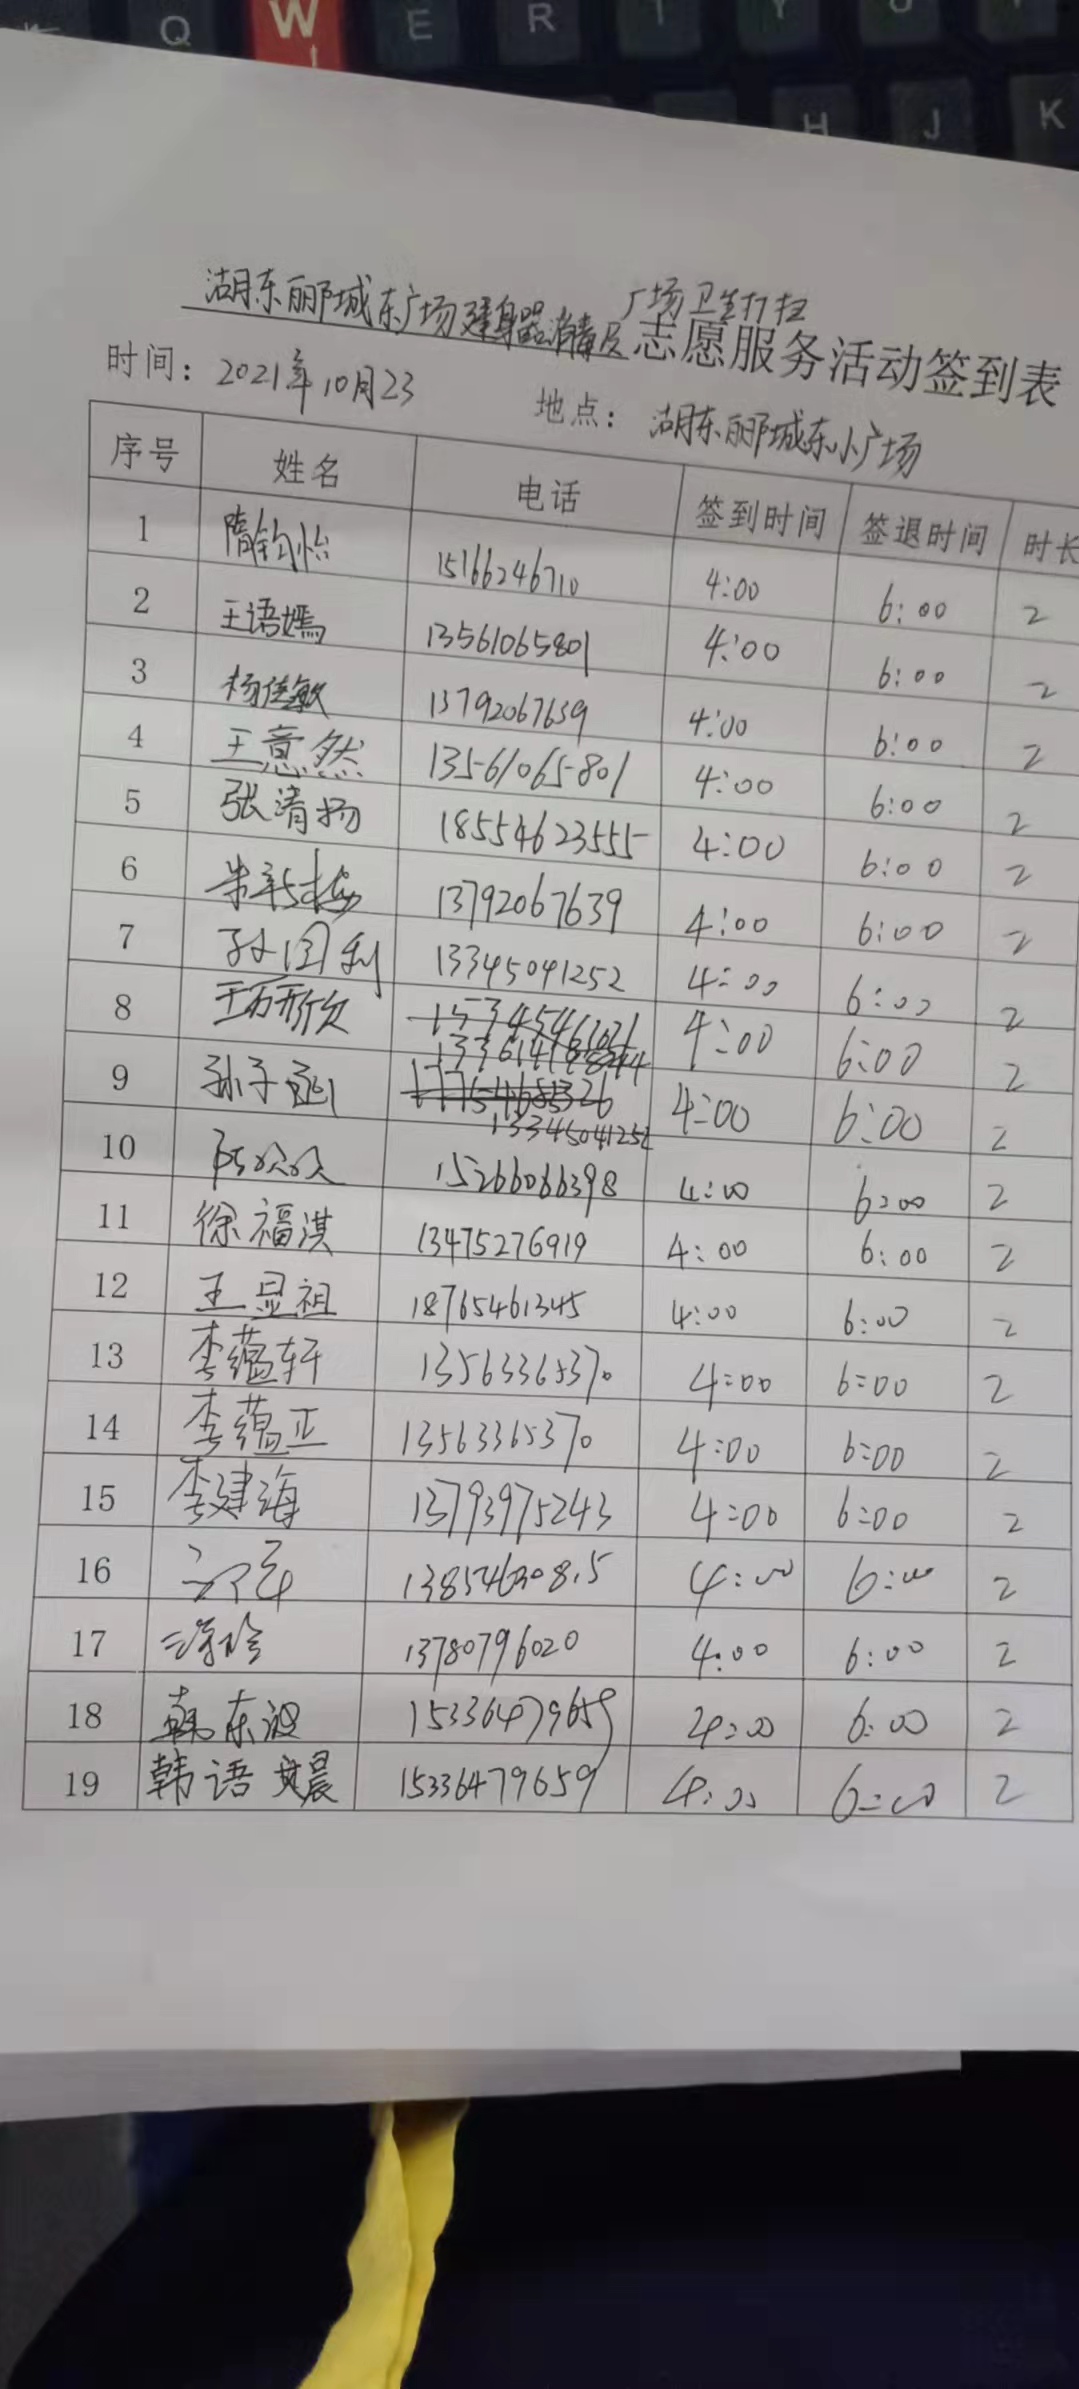 Q W E R T Y U
H J K
广场卫生打扫
湖东丽城东广场健身器消毒及志愿服务活动签到表
时间：2021年10月23 地点：湖东丽城东小广场
序号 姓名 电话 签到时间 签退时间 时长
1 隋钧怡 15166246710 4:00 6:00 2
2 王语嫣 13561065801 4:00 6:00 2
3 杨佳敏 13792067639 4:00 6:00 2
4 王意然 13561065801 4:00 6:00 2
5 张清扬 18554623555 4:00 6:00 2
6 朱新梅 13792067639 4:00 6:00 2
7 孙国利 13345041252 4:00 6:00 2
8 4:00 6:00 2
9 孙子函 13345041252 4:00 6:00 2
10 15266066398 4:00 6:00 2
11 徐福淇 13475276919 4:00 6:00 2
12 王显祖 18765461345 4:00 6:00 2
13 李蕴轩 13563365370 4:00 6:00 2
14 李蕴正 13563365370 4:00 6:00 2
15 李建海 13793975243 4:00 6:00 2
16 4:00 6:00 2
17 13780796020 4:00 6:00 2
18 韩东波 15336479659 4:00 6:00 2
19 韩语晨 15336479659 4:00 6:00 2